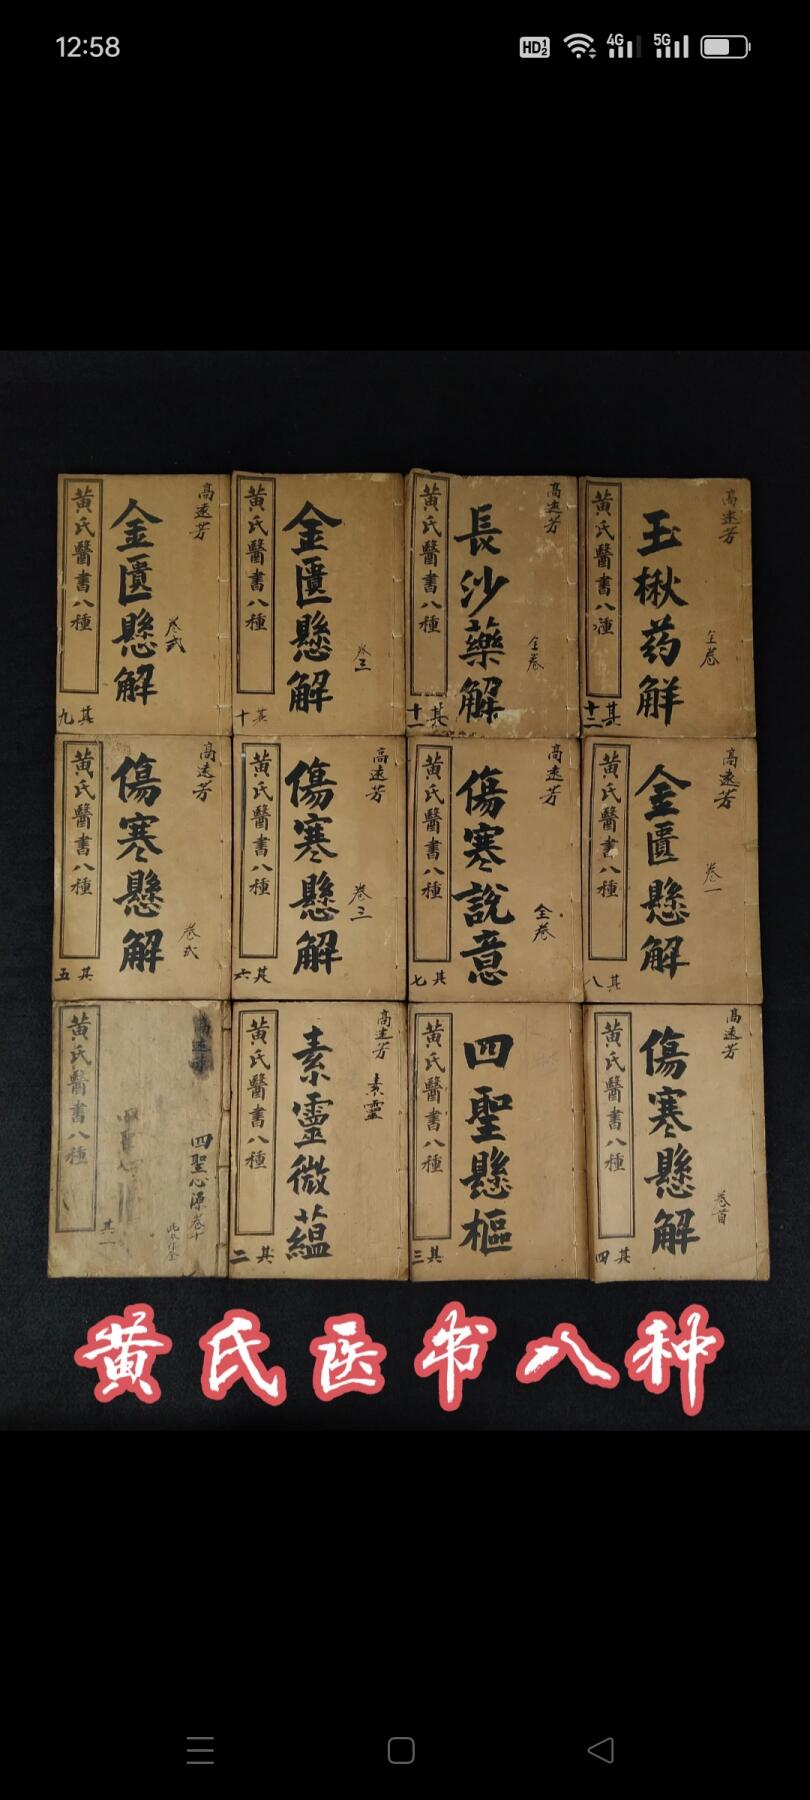 12:58
HD1 2
4G
5G
黄氏醫書八種
金匱懸解
高遠芳
卷弍
其九
黄氏醫書八種
金匱懸解
卷三
其十
黄氏醫書八種
長沙藥解
高遠芳
全卷
其十一
黄氏醫書八種
玉楸药解
高遠芳
全卷
其十二
黄氏醫書八種
傷寒懸解
高遠芳
卷弍
其五
黄氏醫書八種
傷寒懸解
高遠芳
卷三
其六
黄氏醫書八種
傷寒説意
高遠芳
全卷
其七
黄氏醫書八種
金匱懸解
高遠芳
卷一
其八
黄氏醫書八種
高遠芳
四聖心源卷十
其一
黄氏醫書八種
素靈微蘊
高遠芳
素靈
其二
黄氏醫書八種
四聖懸樞
其三
黄氏醫書八種
傷寒懸解
高遠芳
卷首
其四
黄氏医书八种